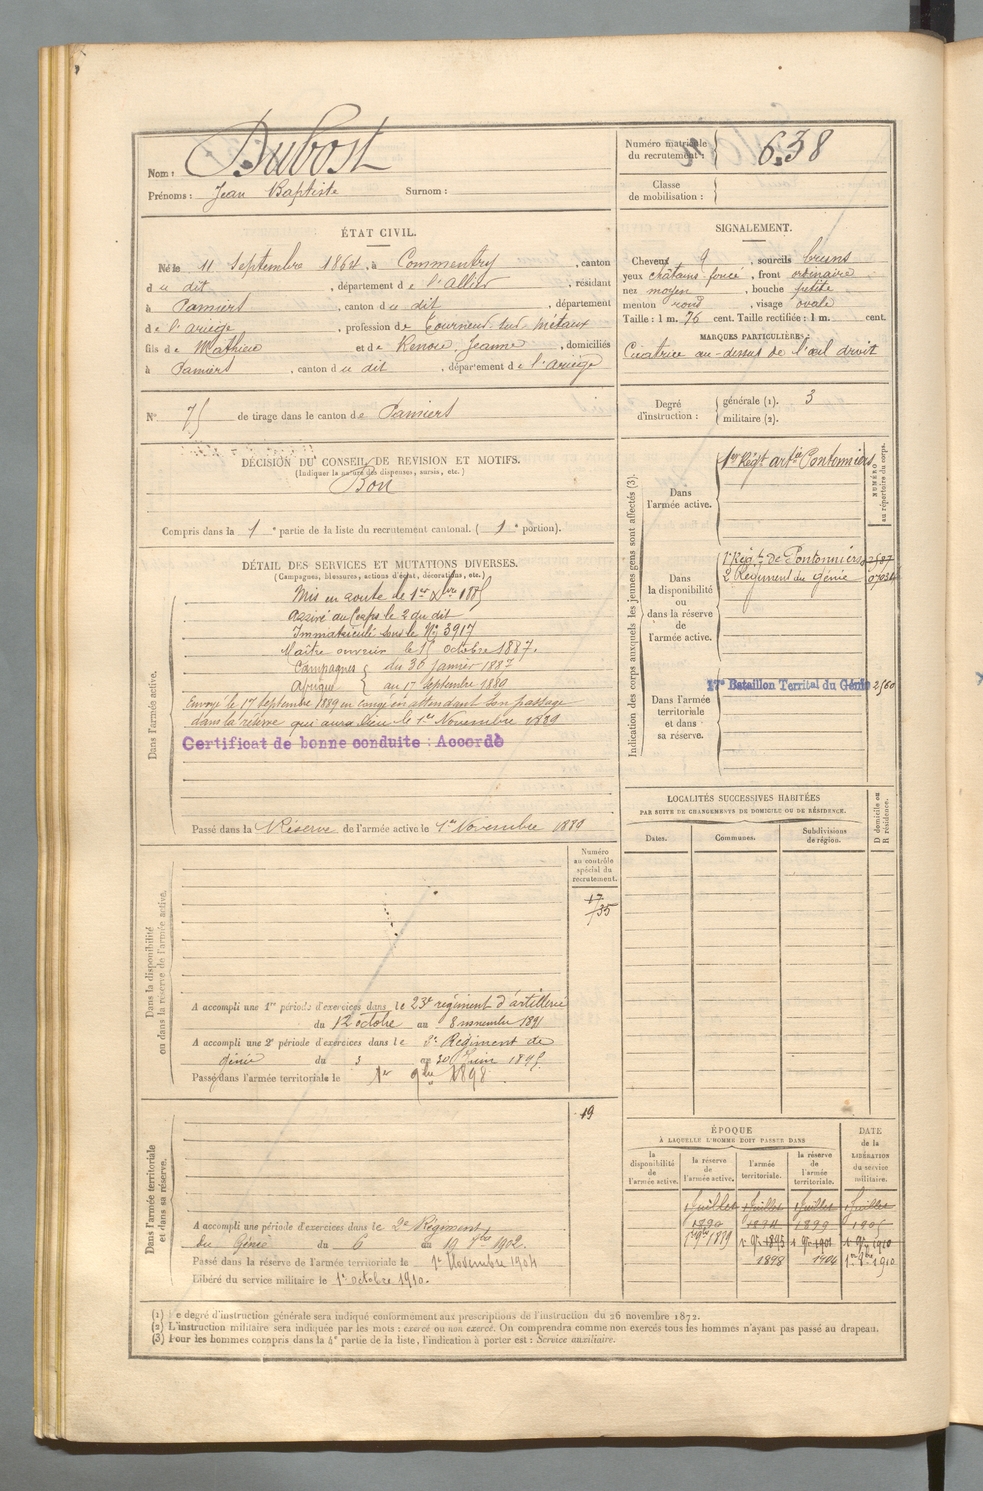 Nom : Dubost
Prénoms : Jean Baptiste Surnom :
Numéro matricule
du recrutement : 638
Classe
de mobilisation :
ÉTAT CIVIL.
Né le 11 Septembre 1864, à Commentry, canton
du dit, département de l'Allier, résidant
à Pamiers, canton du dit, département
de l'ariège, profession de Tourneur sur métaux
fils de Mathieu et de Renoir Jeanne, domiciliés
à Pamiers, canton du dit, département de l'ariège
N° 75 de tirage dans le canton de Pamiers
SIGNALEMENT.
Cheveux, sourcils bruns
yeux châtains foncé, front ordinaire
nez moyen, bouche petite
menton rond, visage ovale
Taille : 1 m. 76 cent. Taille rectifiée : 1 m. cent.
MARQUES PARTICULIÈRES :
Cicatrice au-dessus de l'œil droit
Degré
d'instruction :
générale (1). 3
militaire (2).
DÉCISION DU CONSEIL DE REVISION ET MOTIFS.
(Indiquer la nature des dispenses, sursis, etc.)
Bon
Compris dans la 1e partie de la liste du recrutement cantonal. ( 1e portion).
DÉTAIL DES SERVICES ET MUTATIONS DIVERSES.
(Campagnes, blessures, actions d'éclat, décorations, etc.)
Dans l'armée active.
Mis en route le 1er Xbre 1885
Arrivé au Corps le 2 du dit
Immatriculé sous le N° 3917
Maître ouvrier le 15 octobre 1887.
Campagnes { du 30 janvier 1887
Afrique { au 17 Septembre 1889
Envoyé le 17 septembre 1889 en congé en attendant son passage
dans la réserve qui aura lieu le 1er Novembre 1889
Certificat de bonne conduite : Accordé
Passé dans la Réserve de l'armée active le 1er Novembre 1889
Indication des corps auxquels les jeunes gens sont affectés (3).
NUMÉRO
au répertoire du corps.
Dans
l'armée active.
1er Régt artie Pontonniers
Dans
la disponibilité
ou
dans la réserve
de
l'armée active.
1er Régt de Pontonniers
2e Régiment du génie
Dans l'armée
territoriale
et dans
sa réserve.
17e Bataillon Territal du Génie 2560
LOCALITÉS SUCCESSIVES HABITÉES
PAR SUITE DE CHANGEMENTS DE DOMICILE OU DE RÉSIDENCE.
Dates.
Communes.
Subdivisions
de région.
D domicile ou
R résidence.
Dans la disponibilité
ou dans la réserve de l'armée active.
Numéro
au contrôle
spécial du
recrutement.
17
35
A accompli une 1re période d'exercices dans le 23e régiment d'artillerie
du 12 octobre au 8 novembre 1891
A accompli une 2e période d'exercices dans le 2e Régiment de
génie du 3 au 30 Juin 1895.
Passé dans l'armée territoriale le 1er 9bre 1898.
Dans l'armée territoriale
et dans sa réserve.
19
A accompli une période d'exercices dans le 2e Régiment
du Génie du 6 au 19 1902.
Passé dans la réserve de l'armée territoriale le 1er Novembre 1904
Libéré du service militaire le 1er octobre 1910.
ÉPOQUE
À LAQUELLE L'HOMME DOIT PASSER DANS
la
disponibilité
de
l'armée active.
la réserve
de
l'armée active.
l'armée
territoriale.
la réserve
de
l'armée
territoriale.
DATE
de la
LIBÉRATION
du service
militaire.
1 juillet 1 juillet 1 juillet 1 juillet
1890 1894 1899 1905
1er 9bre 1889 1er 9bre 1895 1er 9bre 1901 1910
1898 1904 1910
(1) Le degré d'instruction générale sera indiqué conformément aux prescriptions de l'instruction du 26 novembre 1872.
(2) L'instruction militaire sera indiquée par les mots : exercé ou non exercé. On comprendra comme non exercés tous les hommes n'ayant pas passé au drapeau.
(3) Pour les hommes compris dans la 4e partie de la liste, l'indication à porter est : Service auxiliaire.